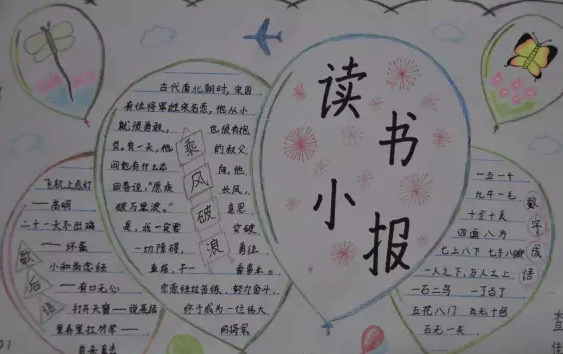 读
书
小
报
乘
风
破
浪
古代南北朝时,宋国
有位将军姓宗名悫,他从小
就很勇敢,也很有抱
负。有一天,他的叔父
问他有什么志向,他
回答说,"愿乘长风,
破万里浪。"意思
是,我一定要突破
一切障碍,勇往
直前,干一番事业。
宗悫经过苦练,努力奋斗,
终于成为一位伟大
的将军
歇
后
语
飞机上点灯
——高明
二十一天不出鸡
——坏蛋
小和尚念经
——有口无心
打开天窗——说亮话
里弄里扛竹竿——
直来直去
数
字
成
语
一五一十
九牛一毛
十全十美
四面八方
七上八下 七手八脚
一人之下,万人之上
一石二鸟 一了百了
五花八门 五光十色
百无一失